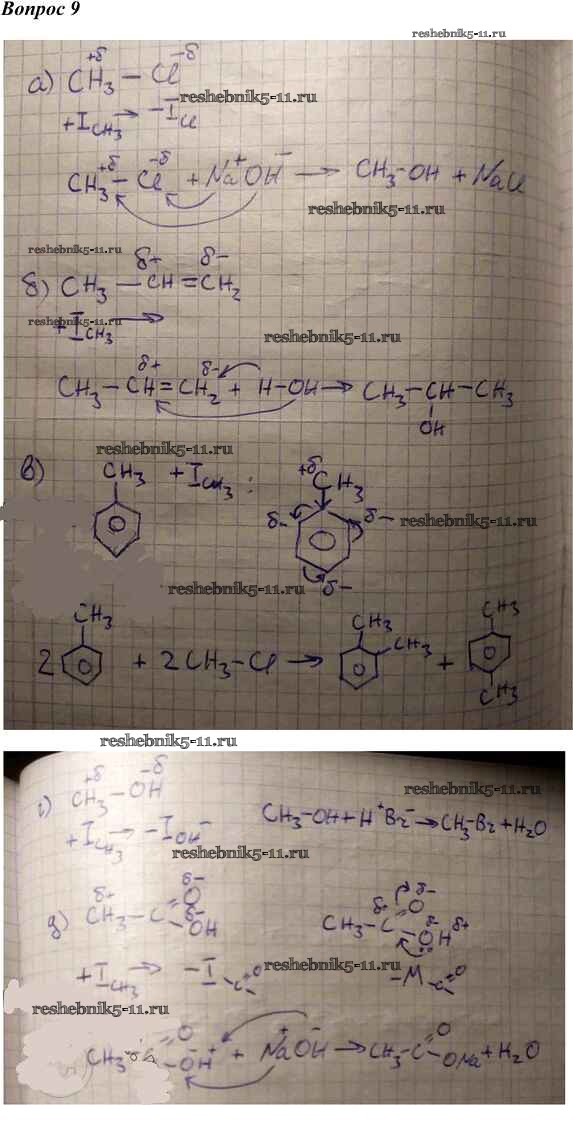 Вопрос 9
reshebnik5-11.ru
+δ −δ
а) CH₃ — Cl
reshebnik5-11.ru
+I CH₃ → −I Cl
+δ −δ
CH₃ — Cl + Na⁺OH⁻ → CH₃–OH + NaCl
reshebnik5-11.ru
reshebnik5-11.ru
δ+ δ−
б) CH₃ — CH = CH₂
reshebnik5-11.ru
+I CH₃ →
reshebnik5-11.ru
δ+ δ−
CH₃ — CH = CH₂ + H–OH → CH₃–CH–CH₃
OH
reshebnik5-11.ru
в) CH₃ +I CH₃ : +δ CH₃
δ− δ− reshebnik5-11.ru
reshebnik5-11.ru
δ−
CH₃ CH₃ CH₃
2 + 2CH₃–Cl → CH₃ +
CH₃
reshebnik5-11.ru
+δ −δ
г) CH₃ — OH
reshebnik5-11.ru
CH₃–OH + H⁺Br⁻ → CH₃–Br + H₂O
+I CH₃ → −I OH⁻
reshebnik5-11.ru
δ− δ−
д) δ+ CH₃ — C O δ− OH δ+ CH₃ — C O δ− OH δ+
+I CH₃ → −I C=O reshebnik5-11.ru −M C=O
reshebnik5-11.ru
CH₃ O OH⁺ + Na⁺OH⁻ → CH₃–C O ONa + H₂O